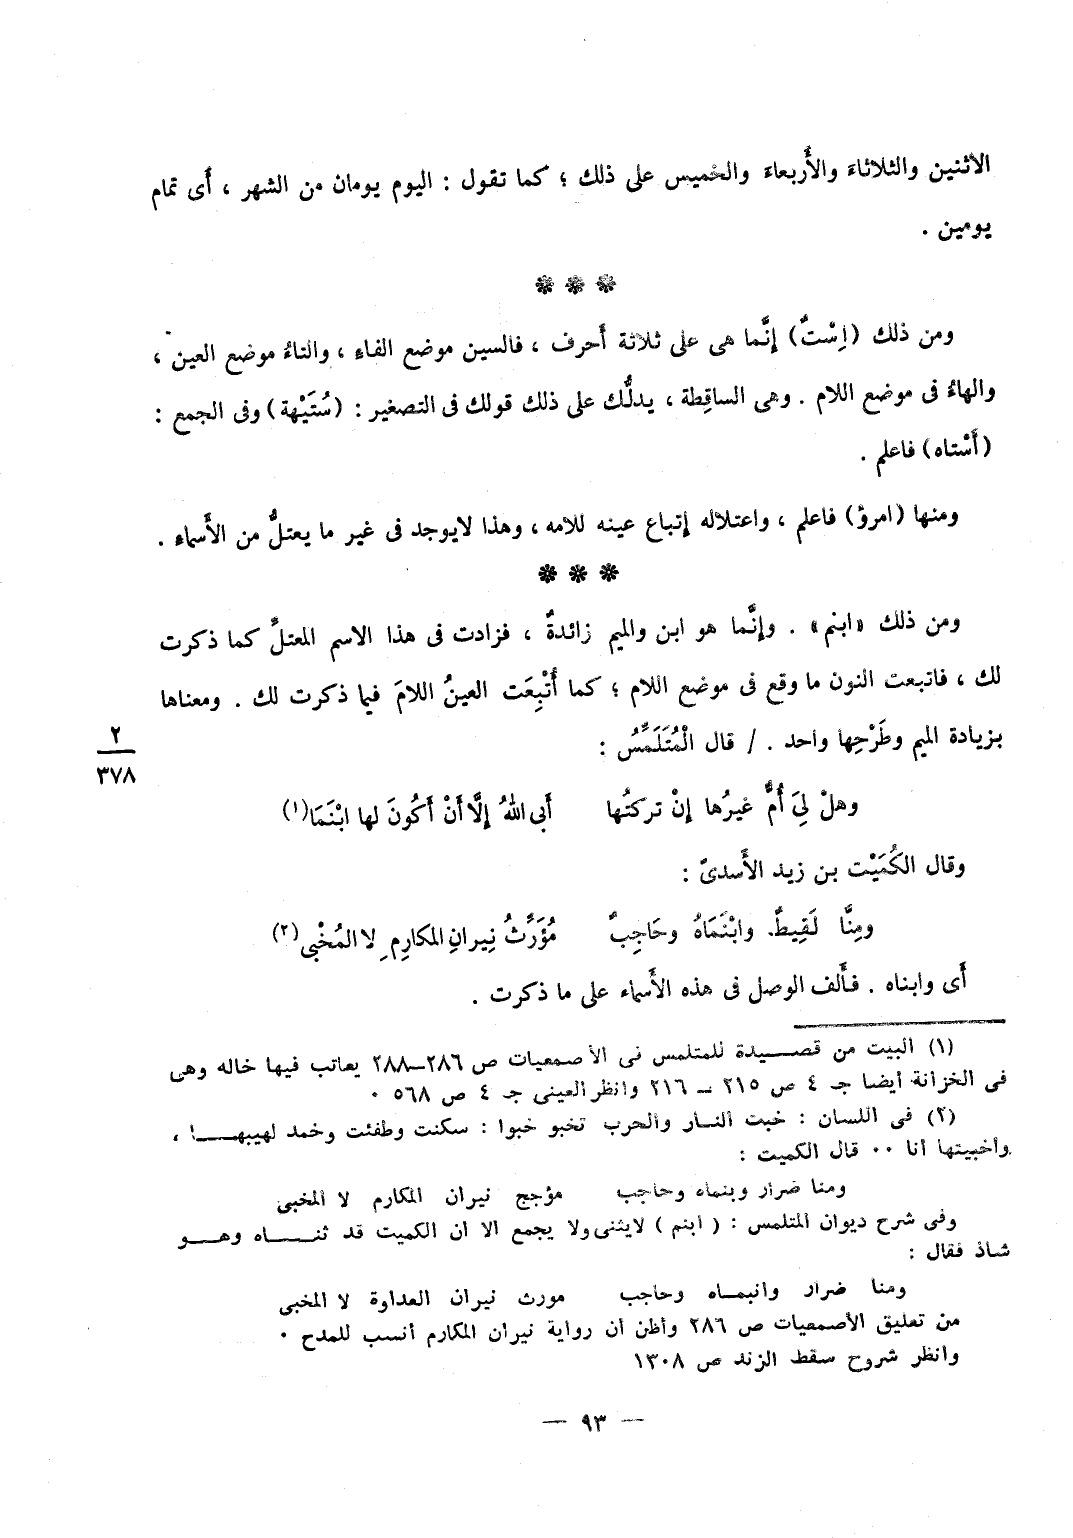 الاثنين والثلاثاءَ والأَربعاءَ والخميس على ذلك ؛ كما تقول : اليوم يومان من الشهر ، أَى تمام
يومين .
❊ ❊ ❊
ومن ذلك (اِسْتٌ) إِنَّما هى على ثلاثة أَحرف ، فالسين موضع الفاءِ ، والتاءُ موضع العين ،
والهاءُ فى موضع اللام . وهى الساقِطة ، يدلُّك على ذلك قولك فى التصغير : (سُتَيْهة) وفى الجمع :
(أَسْتاه) فاعلم .
ومنها (امرؤ) فاعلم ، واعتلاله إِتباع عينه للامه ، وهذا لايوجد فى غير ما يعتلُّ من الأَسماء .
❊ ❊ ❊
ومن ذلك «ابنم» . وإِنَّما هو ابن والميم زائدةٌ ، فزادت فى هذا الاسم المعتلِّ كما ذكرت
لك ، فاتبعت النون ما وقع فى موضع اللام ؛ كما أُتْبِعَت العينُ اللامَ فيما ذكرت لك . ومعناها
بزيادة الميم وطَرْحِها واحد . / قال الْمُتَلَمِّسُ :
٢
٣٧٨
وهلْ لِىَ أُمٌّ غيرُها إِنْ تركتُها أَبى اللهُ إِلَّا أَنْ أَكُونَ لها ابْنَمَا(١)
وقال الكُمَيْت بن زيد الأَسدىّ :
ومِنَّا لَقِيطٌ وابْنَمَاهُ وحَاجِبٌ مُؤَرِّثُ نِيرانِ المكارِمِ لا المُخْبى(٢)
أَى وابناه . فأَلف الوصل فى هذه الأَسماء على ما ذكرت .
(١) البيت من قصـــيدة للمتلمس فى الأصمعيات ص ٢٨٦–٢٨٨ يعاتب فيها خاله وهى
فى الخزانة أيضا جـ ٤ ص ٢١٥ – ٢١٦ وانظر العينى جـ ٤ ص ٥٦٨ ٠
(٢) فى اللسان : خبت النــار والحرب تخبو خبوا : سكنت وطفئت وخمد لهيبهــا ،
وأخبيتها أنا ٠٠ قال الكميت :
ومنا ضرار وبنماه وحاجب مؤجج نيران المكارم لا المخبى
وفى شرح ديوان المتلمس : ( ابنم ) لايثنى ولا يجمع الا ان الكميت قد ثنــــاه وهــو
شاذ فقال :
ومنا ضرار وانبمــاه وحاجب مورث نيران العداوة لا المخبى
من تعليق الأصمعيات ص ٢٨٦ وأظن أن رواية نيران المكارم أنسب للمدح ٠
وانظر شروح سقط الزند ص ١٣٠٨
— ٩٣ —